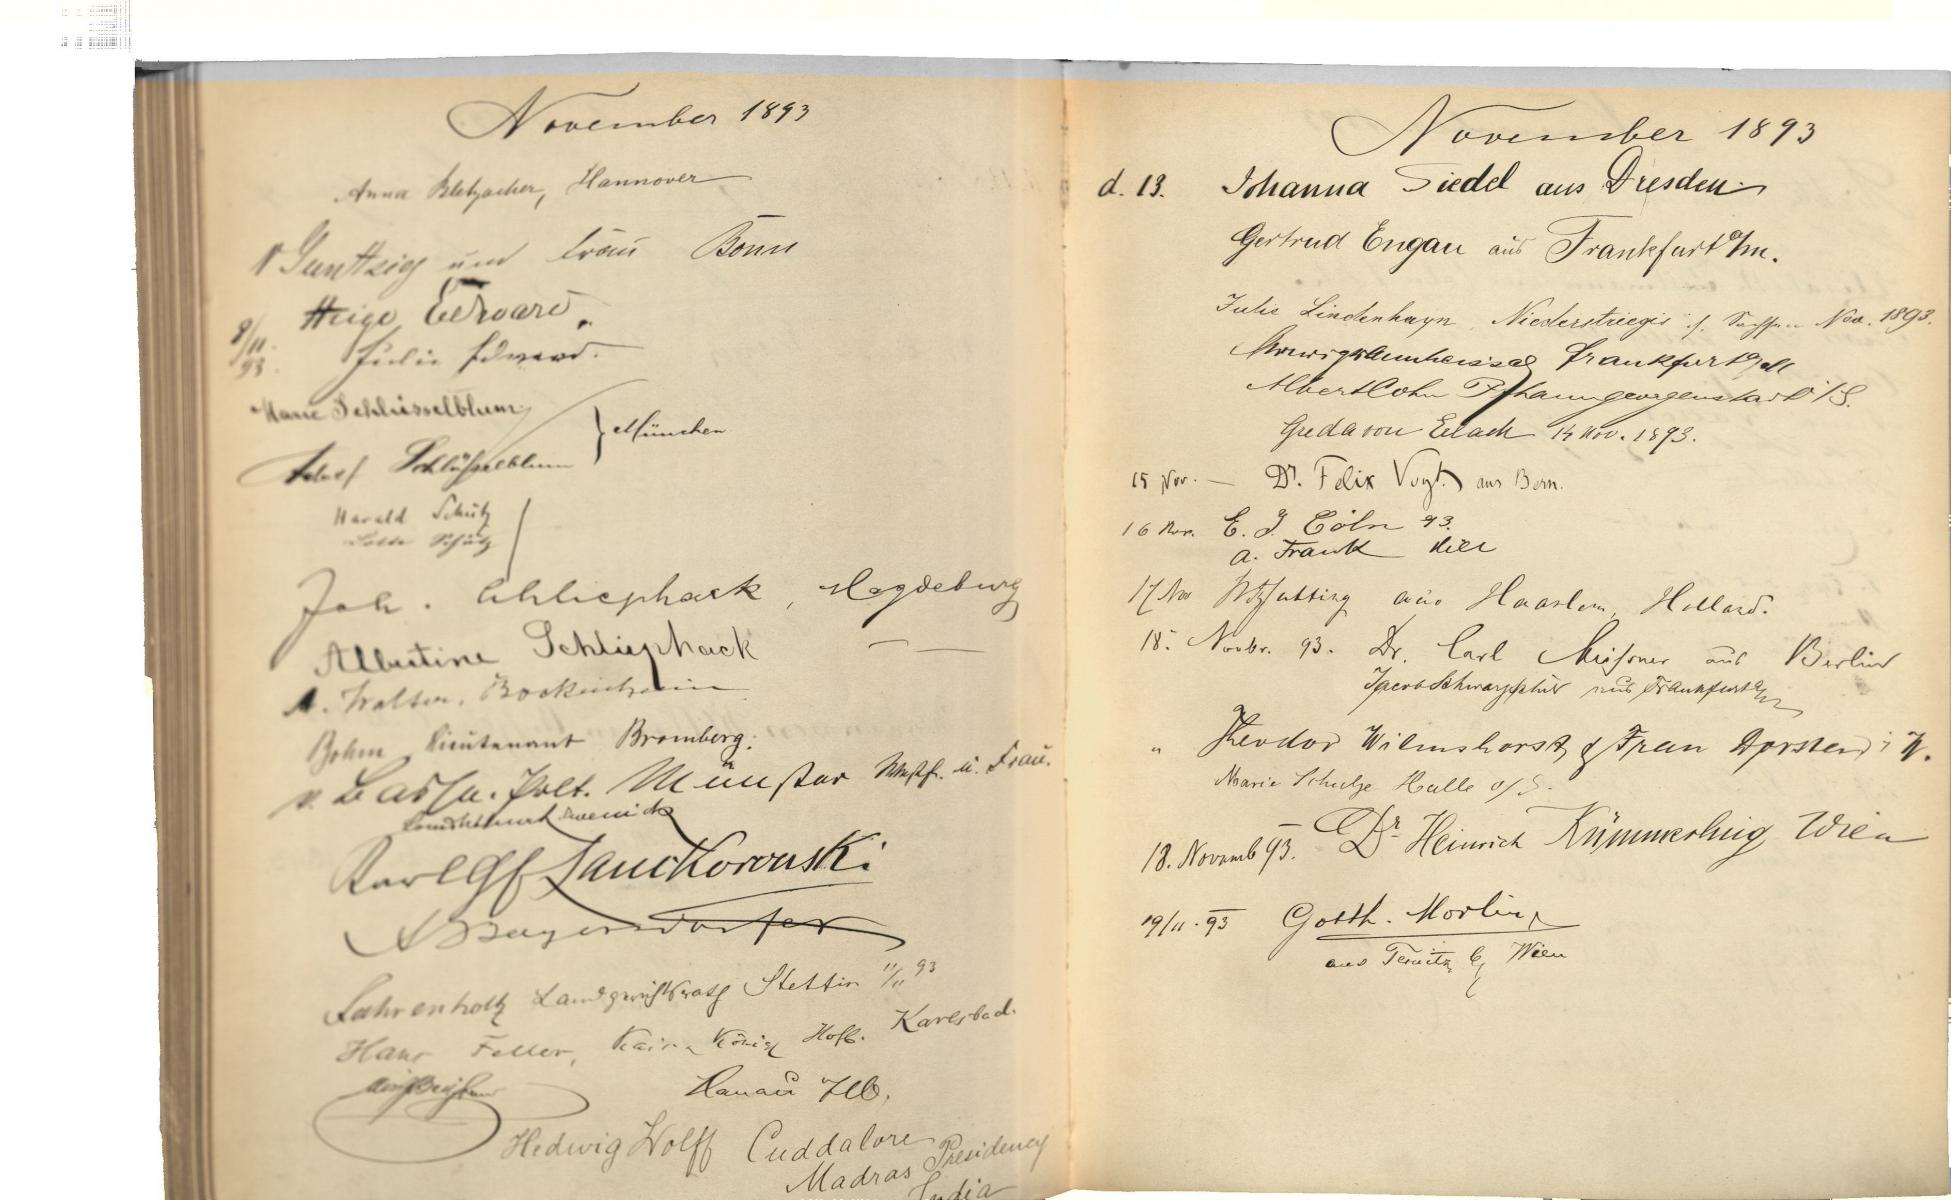 November 1893
Anna Bletzacher, Hannover
und Frau Bonn
Hugo Edward.
8/11 93. Julie Edward.
Marie Schlüsselblum
Schlüsselblum } München
Harald Schütz
Lotte Schütz
Joh. Schliephack, Magdeburg
Albertine Schliephack — —
A. Walter, Bockenheim
Bohm Lieutenant Bromberg.
Münster Westf. u. Frau.
Karl Gf Lanckoronski.
A Bayersdorfer
Fahrenholtz Landgerichtsrath Stettin 11/11 93
Hans Feller, König Hofb. Karlsbad.
Hanau
Hedwig Wolff Cuddalore
Madras Presidency
India
November 1893
d. 13. Johanna Siedel aus Dresden
Gertrud Engau aus Frankfurt a/m.
Julie Lindenhayn Niederstriegis Nov. 1893.
Frankfurt a/M
Albert Cohn Johanngeorgenstadt i/S.
Greda von Erlach 14 Nov. 1893.
15 Nov. — Dr. Felix Vogt. aus Bern.
16 Nov. E. J. Cöln 93.
A. Frank
17 Nov aus Haarlem, Holland.
18. Novbr. 93. Dr. Carl Meißner aus Berlin
Jacob aus Frankfurt a/m
" Theodor Wilmshorst & Frau Dorsten i W.
Marie Schulze Halle a/S.
18. Novemb 93. Dr Heinrich Wien
19/11. 93 Gotth.
aus Ternitz b/ Wien